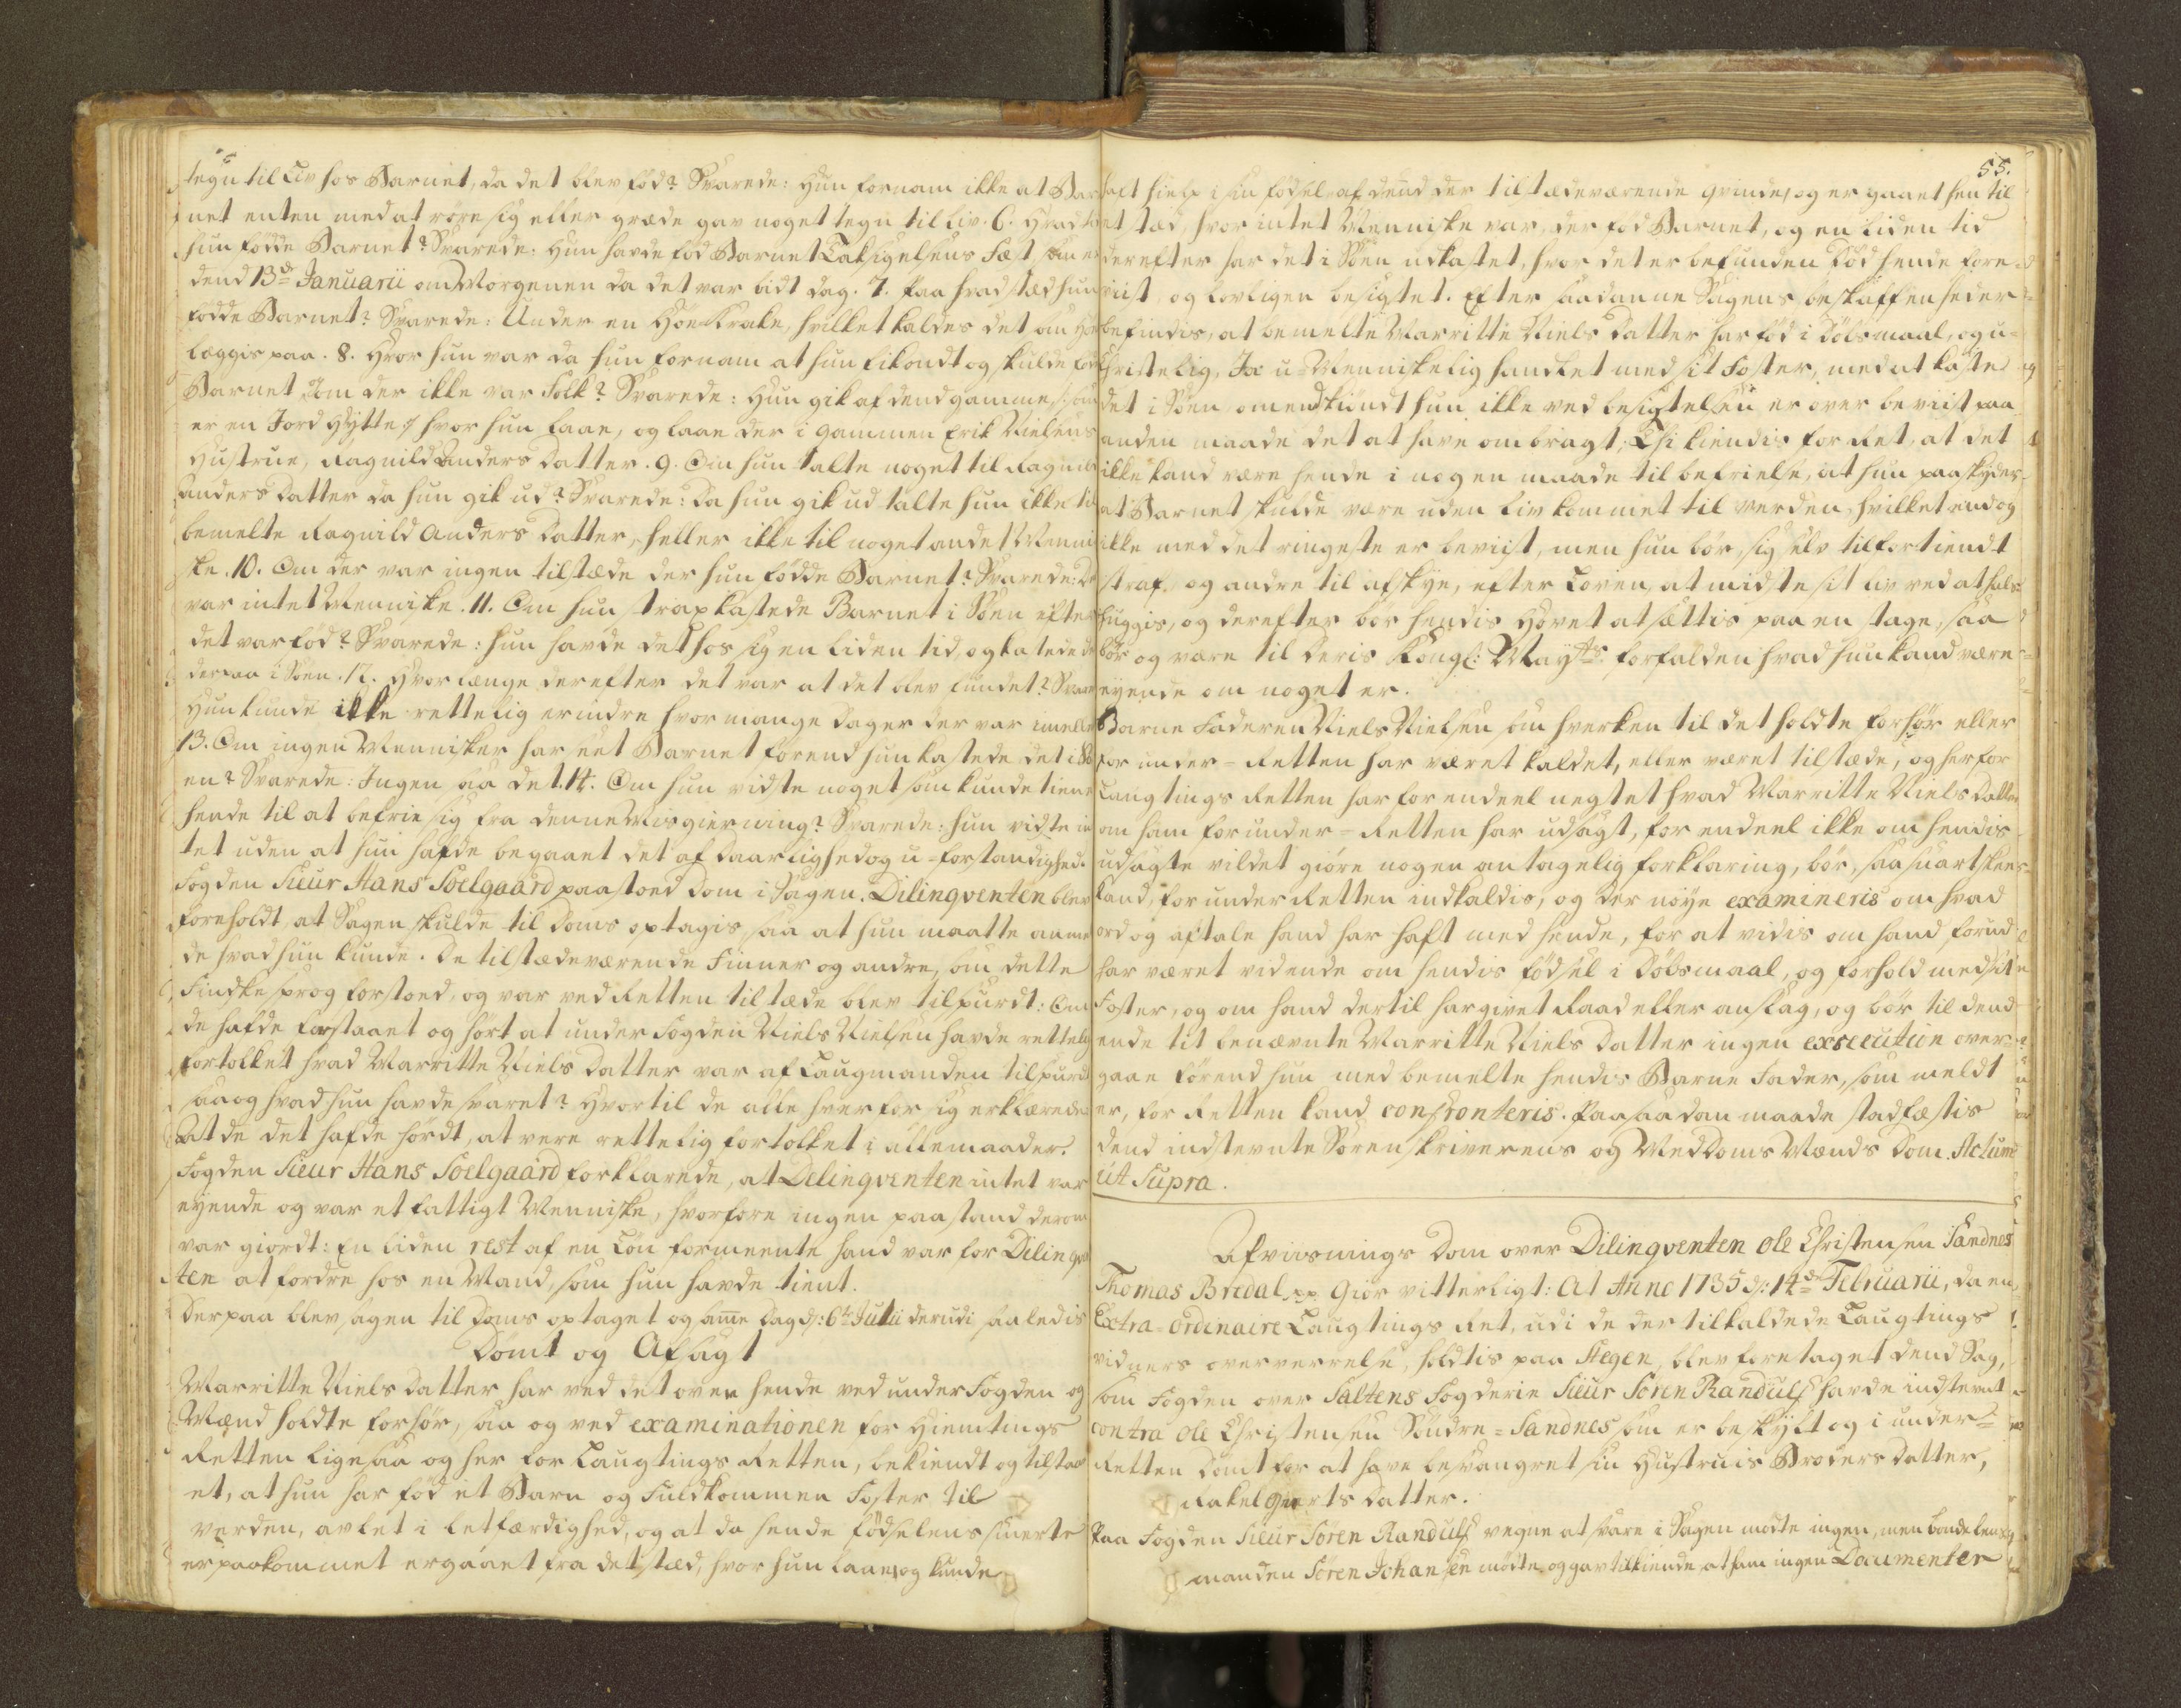 tegn til Liv hos Barnet, da det blev fød? Svarede: Hun fornam ikke at Bar
net enten med at røre sig eller græde gav noget tegn til Liv. 6. Hvad tid
hun fødde Barnet? Svarede: Hun havde fød Barnet Taksigelsens Fæst, som er
dend 13de Januarii om Morgenen da det var lidt dag. 7. Paa hvad stæd hun
fødde Barnet? Svarede: Under en Høe Krake, hvilket kaldes det som Høe
legges paa. 8. Hvor hun var da hun fornam at hun fik ondt og skulde føde
Barnet, om der ikke var Folk? Svarede: Hun gik af dend gamme, som
er en Jord Hytte, hvor hun laae, og laae der i gammen Erik Nielsens
Hustrue, Ragnild Anders Datter. 9. Om hun talte noget til Ragnild
Anders Datter da hun gik ud? Svarede: Da hun gik ud talte hun ikke til
bemelte Ragnild Anders Datter, heller ikke til noget andet Menni
ske. 10. Om der var ingen tilstæde der hun fødde Barnet? Svarede: Der
var intet Menniske. 11. Om hun strax kastede Barnet i Søen efter
det var fød? Svarede: hun havde det hos sig en liden tid, og kastede det
derpaa i Søen. 12. Hvor længe derefter det var at det blev fundet? Svarede
Hun kunde ikke rettelig erindre hvor mange dager der var imellem
13. Om ingen Mennisker har seet Barnet førend hun kastede det i Sø
en? Svarede: Ingen saa det. 14. Om hun vidste noget som kunde tiene
hende til at befrie sig fra denne Misgierning? Svarede: hun vidste in
tet uden at hun hafde begaaet det af Daarlighed og u-forstandighed.
Fogden Sieur Hans Soelgaard paastoed dom i Sagen. Dilinqventen blev
foreholdt, at Sagen skulde til Doms optagis, saa at hun maatte anmel
de hvad hun kunde. De tilstædeværende Finner og andre, som dette
Findske sprog forstoed, og var ved Retten tilstæde blev tilspurdt: Om
de hafde forstaaet og hørt at under Fogden Niels Nielsen havde rettelig
fortolket hvad Marritte Niels Datter var af Laugmanden tilspurdt
saa og hvad hun havde svaret? Hvortil de alle hver for sig erklærede:
At de det hafde hørdt, at være rettelig fortolket i alle maader.
Fogden Sieur Hans Soelgaard forklarede, at Delinqventen intet var
eyende og var et fattigt Menniske, hvorfore ingen paastand derom
var giordt: En liden rest af en Løn formeente hand var for Dilinqven
ten at fordre hos en Mand, som hun havde tient.
Derpaa blev Sagen til Doms optaget og samme Dag d: 6te Julii derudi saaledis
Dømt og Afsagt
Marritte Niels Datter har ved det over hende ved under Fogden og
Mænd holdte forhør, saa og ved examinationen for Hiemtings
Retten ligesaa og her for Laugtings Retten, bekiendt og tilstaa
et, at hun har fød et Barn og Fuldkommen Foster til
verden, avlet i letfærdighed, og at da hende fødselens smerte
er paakommet er gaaet fra det stæd, hvor hun laae, og kunde
55.
haft hielp i sin fødsel af dend der tilstædeværende Qvinde, og er gaaet hen til
et stæd, hvor intet Menniske var, der fød Barnet, og en liden tid
derefter har det i Søen udkastet, hvor det er befunden Død hende fore
viist, og lovligen besigtet. Efter saadanne Sagens beskaffenheder
befindis, at bemelte Marritte Niels Datter har fød i Dølsmaal, og u-
Christelig, Ja u-Menniskelig handlet med sit Foster, med at kaste
det i Søen, omendskiøndt hun ikke ved besigtelsen er over beviist paa
anden maade det at have ombragt; Thi kiendis for Ret, at det
ikke kand være hende i nogen maade til befrielse, at hun paaskyder
at Barnet skulde være uden Liv kommet til verden, hvilket endog
ikke med det ringeste er beviist, men hun bør, sig selv til fortiendt
straf, og andre til afskye, efter Loven, at miste sit Liv ved at hals-
hugges, og derefter bør hendis Hovet at settis paa en stage, saa
bør og være til Deris Kongl: Mayts forfalden hvad hun kand være
eyende om noget er.
Barne Faderen Niels Nielsen som hverken til det holdte forhør eller
for under-Retten har været kaldet, eller været tilstæde, og her for
Laugtings Retten har for endeel negtet hvad Marritte Niels Datter
om ham for under-Retten har udsagt, for endeel ikke om hendis
udsagte vildet giøre nogen antagelig forklaring, bør, saa snart skee
kand, for under Retten indkaldis, og der nøye examineris om hvad
ord og aftale hand har haft med hende, for at vidis om hand forud
har været vidende om hendis fødsel i Dølsmaal, og forhold med sit
Foster, og om hand dertil har givet Raad eller anslag, og bør til dend
ende tit benævnte Marritte Niels Datter ingen exsecution over-
gaae førend hun med bemelte hendis Barne Fader, som meldt
er, for Retten kand confronteris. Paa saadan maade stadfæstis
dend indstevnte Sørenskriverens og Meddoms Mænds Dom. Actum
ut Supra.
Afviisnings Dom over Dilinqventen Ole Christensen Sandnes
Thomas Bredal pp Giør vitterligt: At Anno 1735 d: 14de Februarii, da en
Extra-Ordinaire Laugtings Ret, udi de der tilkaldede Laugtings
vidners oververrelse, holdtis paa Stegen, blev foretaget dend Sag,
som Fogden over Saltens Fogderie Sieur Søren Randulf havde indstevnt
contra Ole Christensen Søndre-Sandnes som er beskylt og i under-
Retten dømt for at have besvangret sin Hustruis Broders Datter,
Rakel Qverts Datter.
Paa Fogden Sieur Søren Randulfs vegne at svare i Sagen mødte ingen, men bonde lens
manden Søren Johansen mødte og gav tilkiende, at ham ingen Documenter